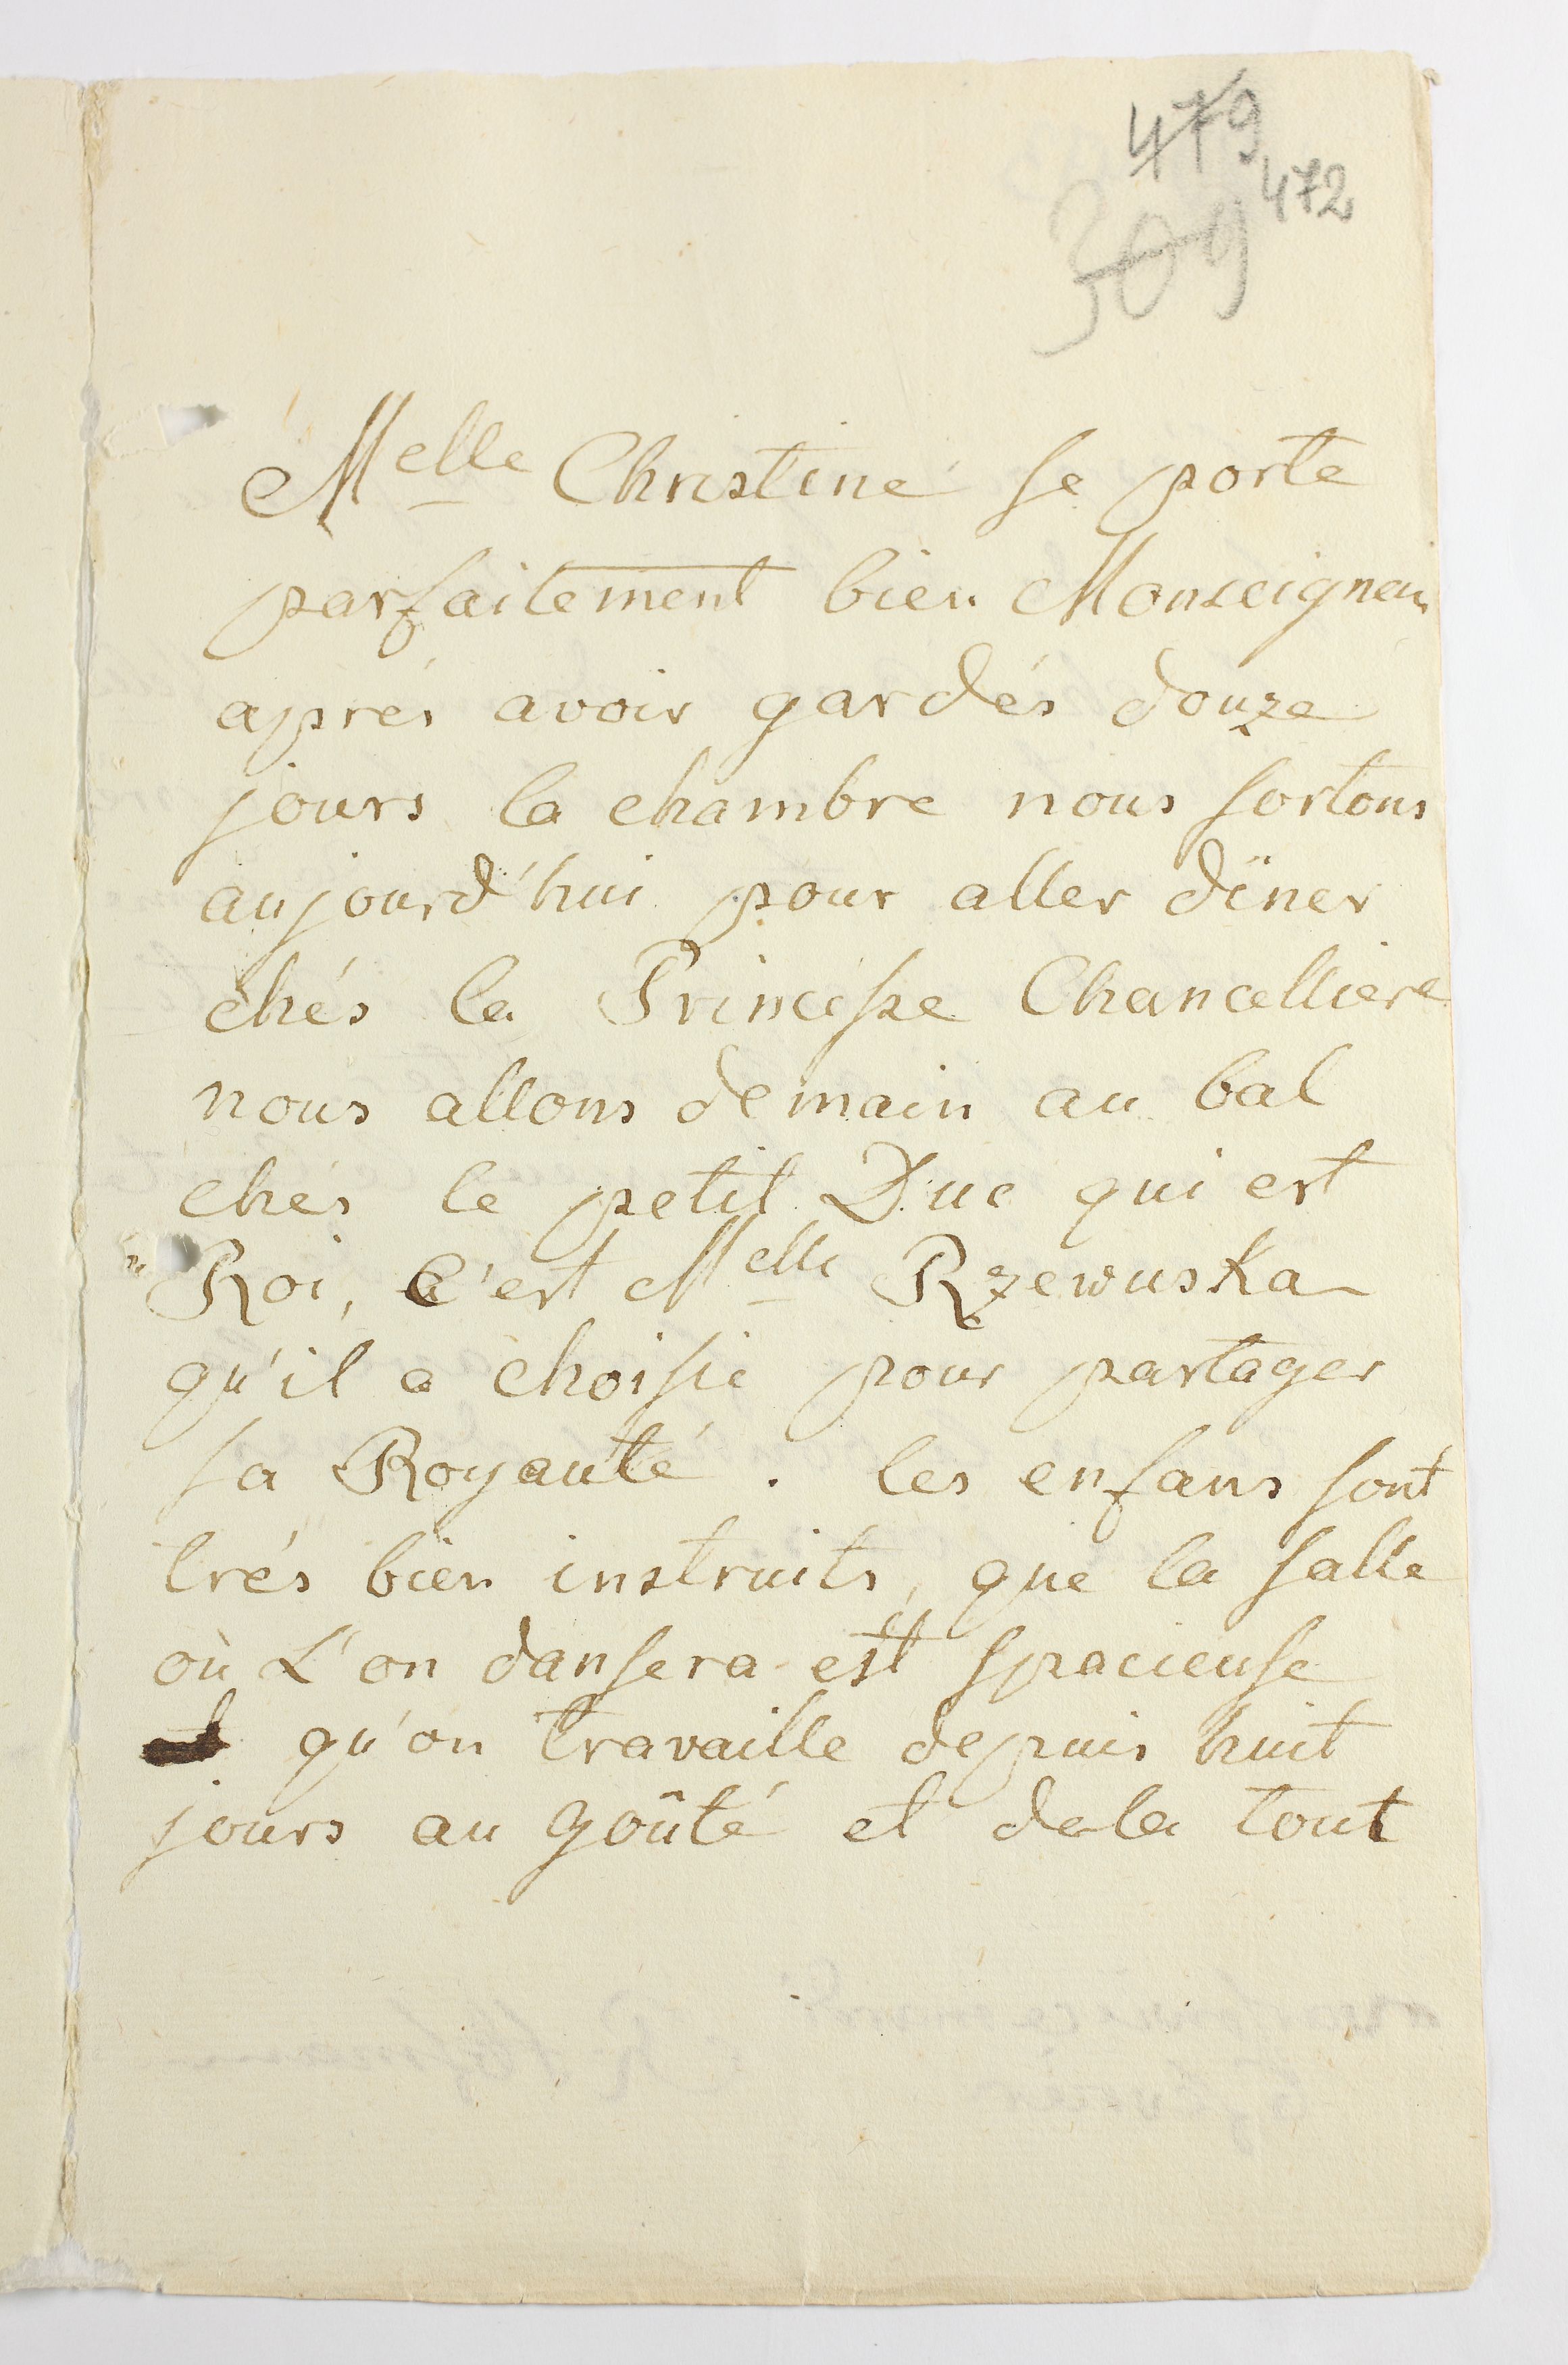 479
472
309
Melle Christine se porte
parfaitement bien Monseigneur
aprés avoir gardés douze
jours la chambre nous sortons
aujourd'hui pour aller dïner
chés la Princesse Chancelliere
nous allons demain au bal
chés le petit Duc qui est
Roi, c'est Melle Rzewuska
qu'il a choisie pour partager
sa Royauté. les enfans sont
trés bien instruits, que la salle
où L'on dansera est spacieuse
qu'on travaille depuis huit
jours au goûté et dela tout